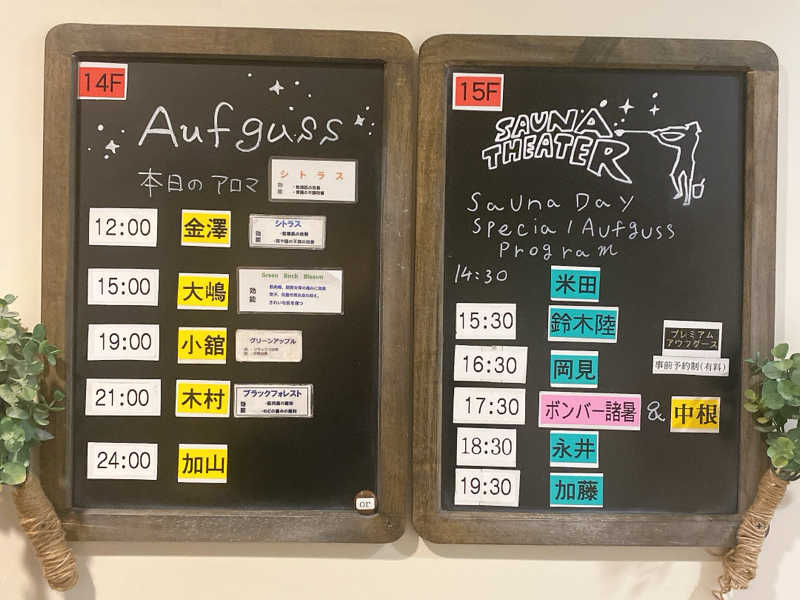 14F
Aufguss
本日のアロマ
シトラス
効能
12:00 金澤
シトラス
効能
15:00 大嶋
Green Birch Blossom
効能
19:00 小舘
グリーンアップル
21:00 木村
ブラックフォレスト
効能
24:00 加山
or
15F
SAUNA
THEATER
Sauna Day
Special Aufguss
Program
14:30 米田
15:30 鈴木陸
プレミアム
アウフグース
16:30 岡見
事前予約制(有料)
17:30 ボンバー諸暑 & 中根
18:30 永井
19:30 加藤